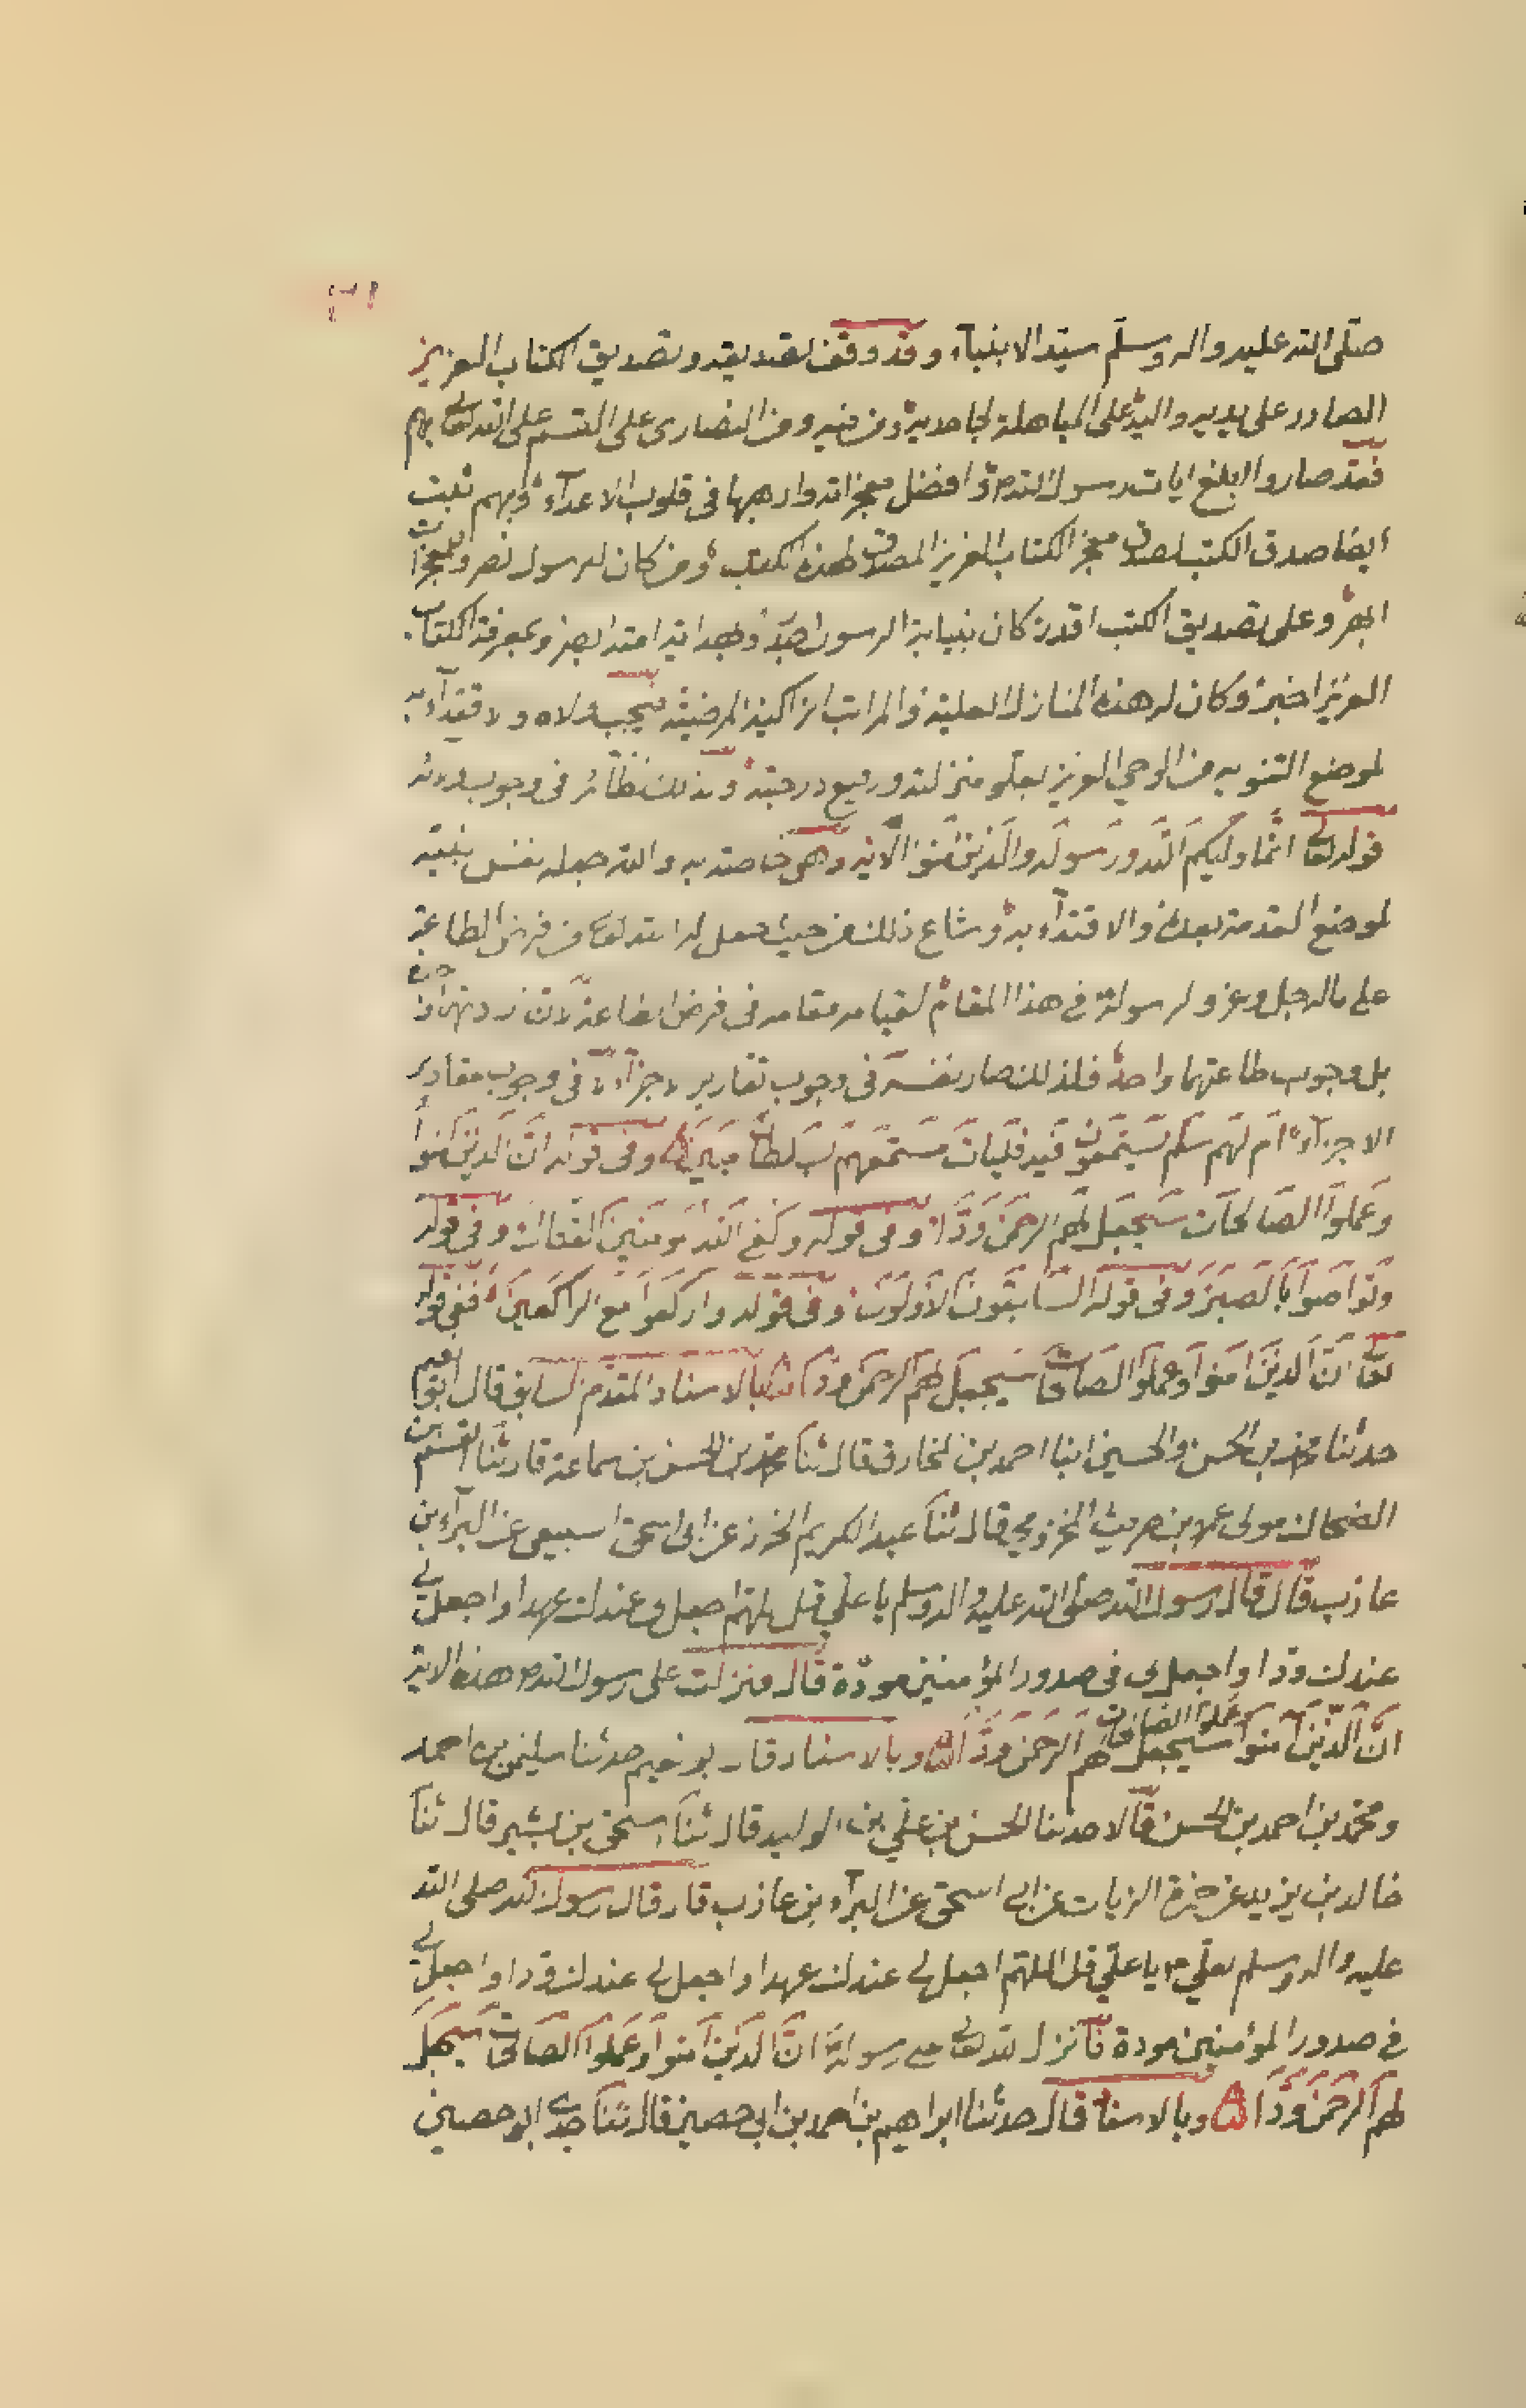 صلى الله عليه واله وسلم سيد الانبياء وقد وقف تصديقه وتصديق الكتاب العزيز
الصادر على يديه واليه على المباهلة لجاحديه ومن فيه ومن النصارى على القسم على الله تعالى بهم
فقد صاروا ابلغ ايات رسول الله ص وافضل معجزاته وارهبها فى قلوب الاعداء وبهم ثبت
ايضا صدق الكتب لصدق معجز الكتاب العزيز المصدق لهذه الكتب ومن كان للرسول نصر وللمعجزات
ابهر وعلى تصديق الكتب اقدر كان بنيابة الرسول اجدر ولهدايته امته ابصر وبمعرفة الكتاب
العزيز اخبر وكان له هذه المنازل العلية والمراتب الزاكية المرضية فيجب ولاه والاقتداء به
لموضع التنويه من الوحي العزيز بعلو منزلته ورفيع درجته ولذلك نظائر فى وجوب ولائه
قوله تعالى انما وليكم الله ورسوله والذين امنوا الآية وهى خاصة به والله جعله نفس نبيه
لموضع القدمة بعده والاقتداء به وشاع ذلك من حيث جعل له الله تعالى من فرض الطاعة
على ماله جل وعز ولرسوله فى هذا المقام لقيامه مقامه فى فرض الطاعة
بل وجوب طاعتهما واحد فلذلك صار نفسه فى وجوب تقارير لاجزاء فى وجوب مقادير
الاجزاء ام لهم سلم يستمعون فيه فليات مستمعهم بسلطان مبين وفى قوله ان الذين امنوا
وعملوا الصالحات سيجعل لهم الرحمن ودا وفى قوله وكفى الله المومنين القتال وفى قوله
وتواصوا بالصبر وفى قوله السابقون الاولون وفى قوله واركعوا مع الراكعين ففى قوله
تعالى ان الذين امنوا وعملوا الصالحات سيجعل لهم الرحمن ودا بالاسناد المقدم السابق قال ابو نعيم
حدثنا محمد بن الحسن والحسين انبا احمد بن المخارق قال ثنا محمد بن الحسن بن سماعة قال ثنا القسم بن
الضحاك مولى عمرو بن حريث المخزومي قال ثنا عبد الكريم الخزز عن ابى اسحق السبيعى عن البراء بن
عازب قال قال رسول الله صلى الله عليه واله وسلم يا علي قل اللهم اجعل لى عندك عهدا واجعل لى
عندك ودا واجعل لى فى صدور المؤمنين مودة قال فنزلت على رسول الله ص هذه الاية
ان الذين امنوا وعملوا الصالحات سيجعل لهم الرحمن ودا وبالاسناد قال ابو نعيم حدثنا سليمن بن احمد
ومحمد بن احمد بن الحسن قالا حدثنا الحسن بن علي بن الوليد قال ثنا اسحق بن بشير قال ثنا
خالد بن يزيد عن حمزة الزيات عن ابى اسحق عن البراء بن عازب قال قال رسول الله صلى الله
عليه واله وسلم لعلي ع يا علي قل اللهم اجعل لى عندك عهدا واجعل لى عندك ودا واجعل لى
فى صدور المؤمنين مودة فانزل الله تعالى على رسوله ان الذين امنوا وعملوا الصالحات سيجعل
لهم الرحمن ودا وبالاسناد قال حدثنا ابراهيم بن احمد بن ابى حصين قال ثنا جدى ابو حصين